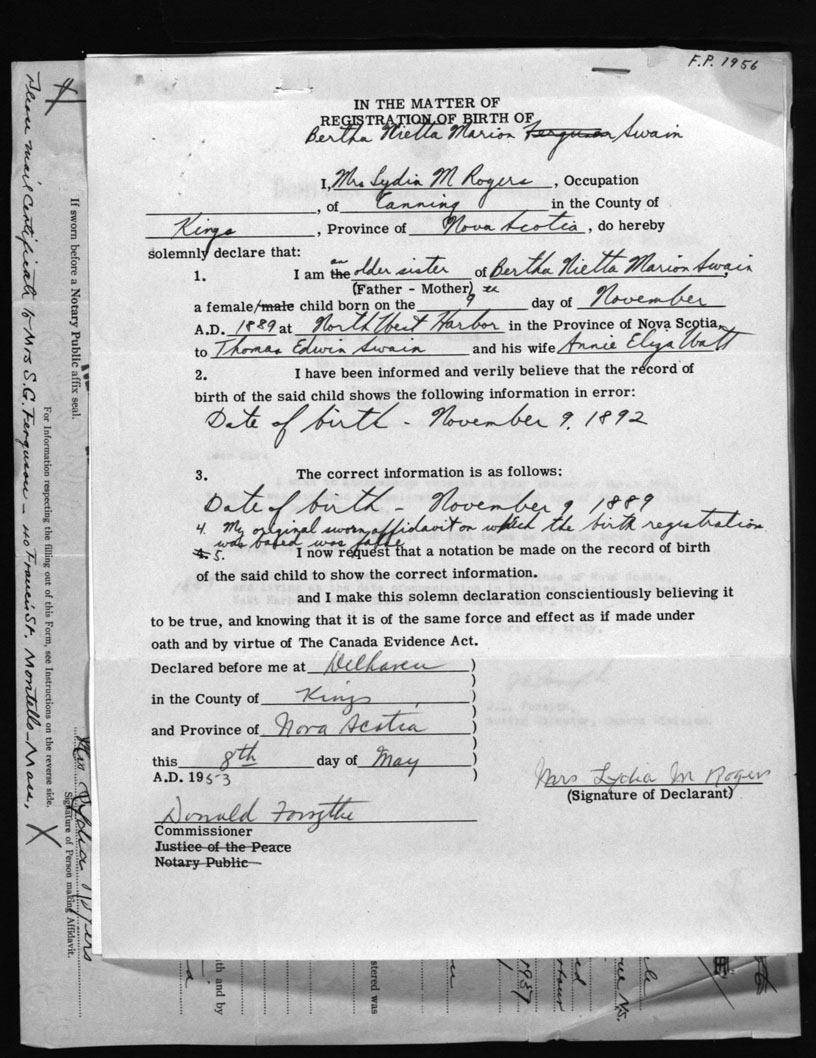 F.P. 1956
IN THE MATTER OF
REGISTRATION OF BIRTH OF
Bertha Nietta Marion Ferguson Swain
I, Mrs Lydia M Rogers, Occupation
, of Canning in the County of
Kings, Province of Nova Scotia, do hereby
solemnly declare that:
an
1. I am the older sister of Bertha Nietta Marion Swain
(Father - Mother)
a female/male child born on the 9 day of November
A.D. 1889 at North West Harbor in the Province of Nova Scotia,
to Thomas Edwin Swain and his wife Annie Eliza Watt
2. I have been informed and verily believe that the record of
birth of the said child shows the following information in error:
Date of birth - November 9, 1892
3. The correct information is as follows:
Date of birth - November 9 1889
4. My original sworn affidavit on which the birth registration
was based was false
5. I now request that a notation be made on the record of birth
of the said child to show the correct information.
and I make this solemn declaration conscientiously believing it
to be true, and knowing that it is of the same force and effect as if made under
oath and by virtue of The Canada Evidence Act.
Declared before me at Delhaven )
)
in the County of Kings )
)
and Province of Nova Scotia )
)
this 8th day of May )
A.D. 1953 )
Mrs Lydia M Rogers
(Signature of Declarant)
Donald Forsythe
Commissioner
Justice of the Peace
Notary Public
Please mail Certificate to Mrs S.G. Ferguson - 40 Francis St. Montello - Mass, X
If sworn before a Notary Public affix seal.
For Information respecting the filling out of this Form, see Instructions on the reverse side.
Mrs Lydia Rogers
Signature of Person making Affidavit.
th and by
stered was
1957